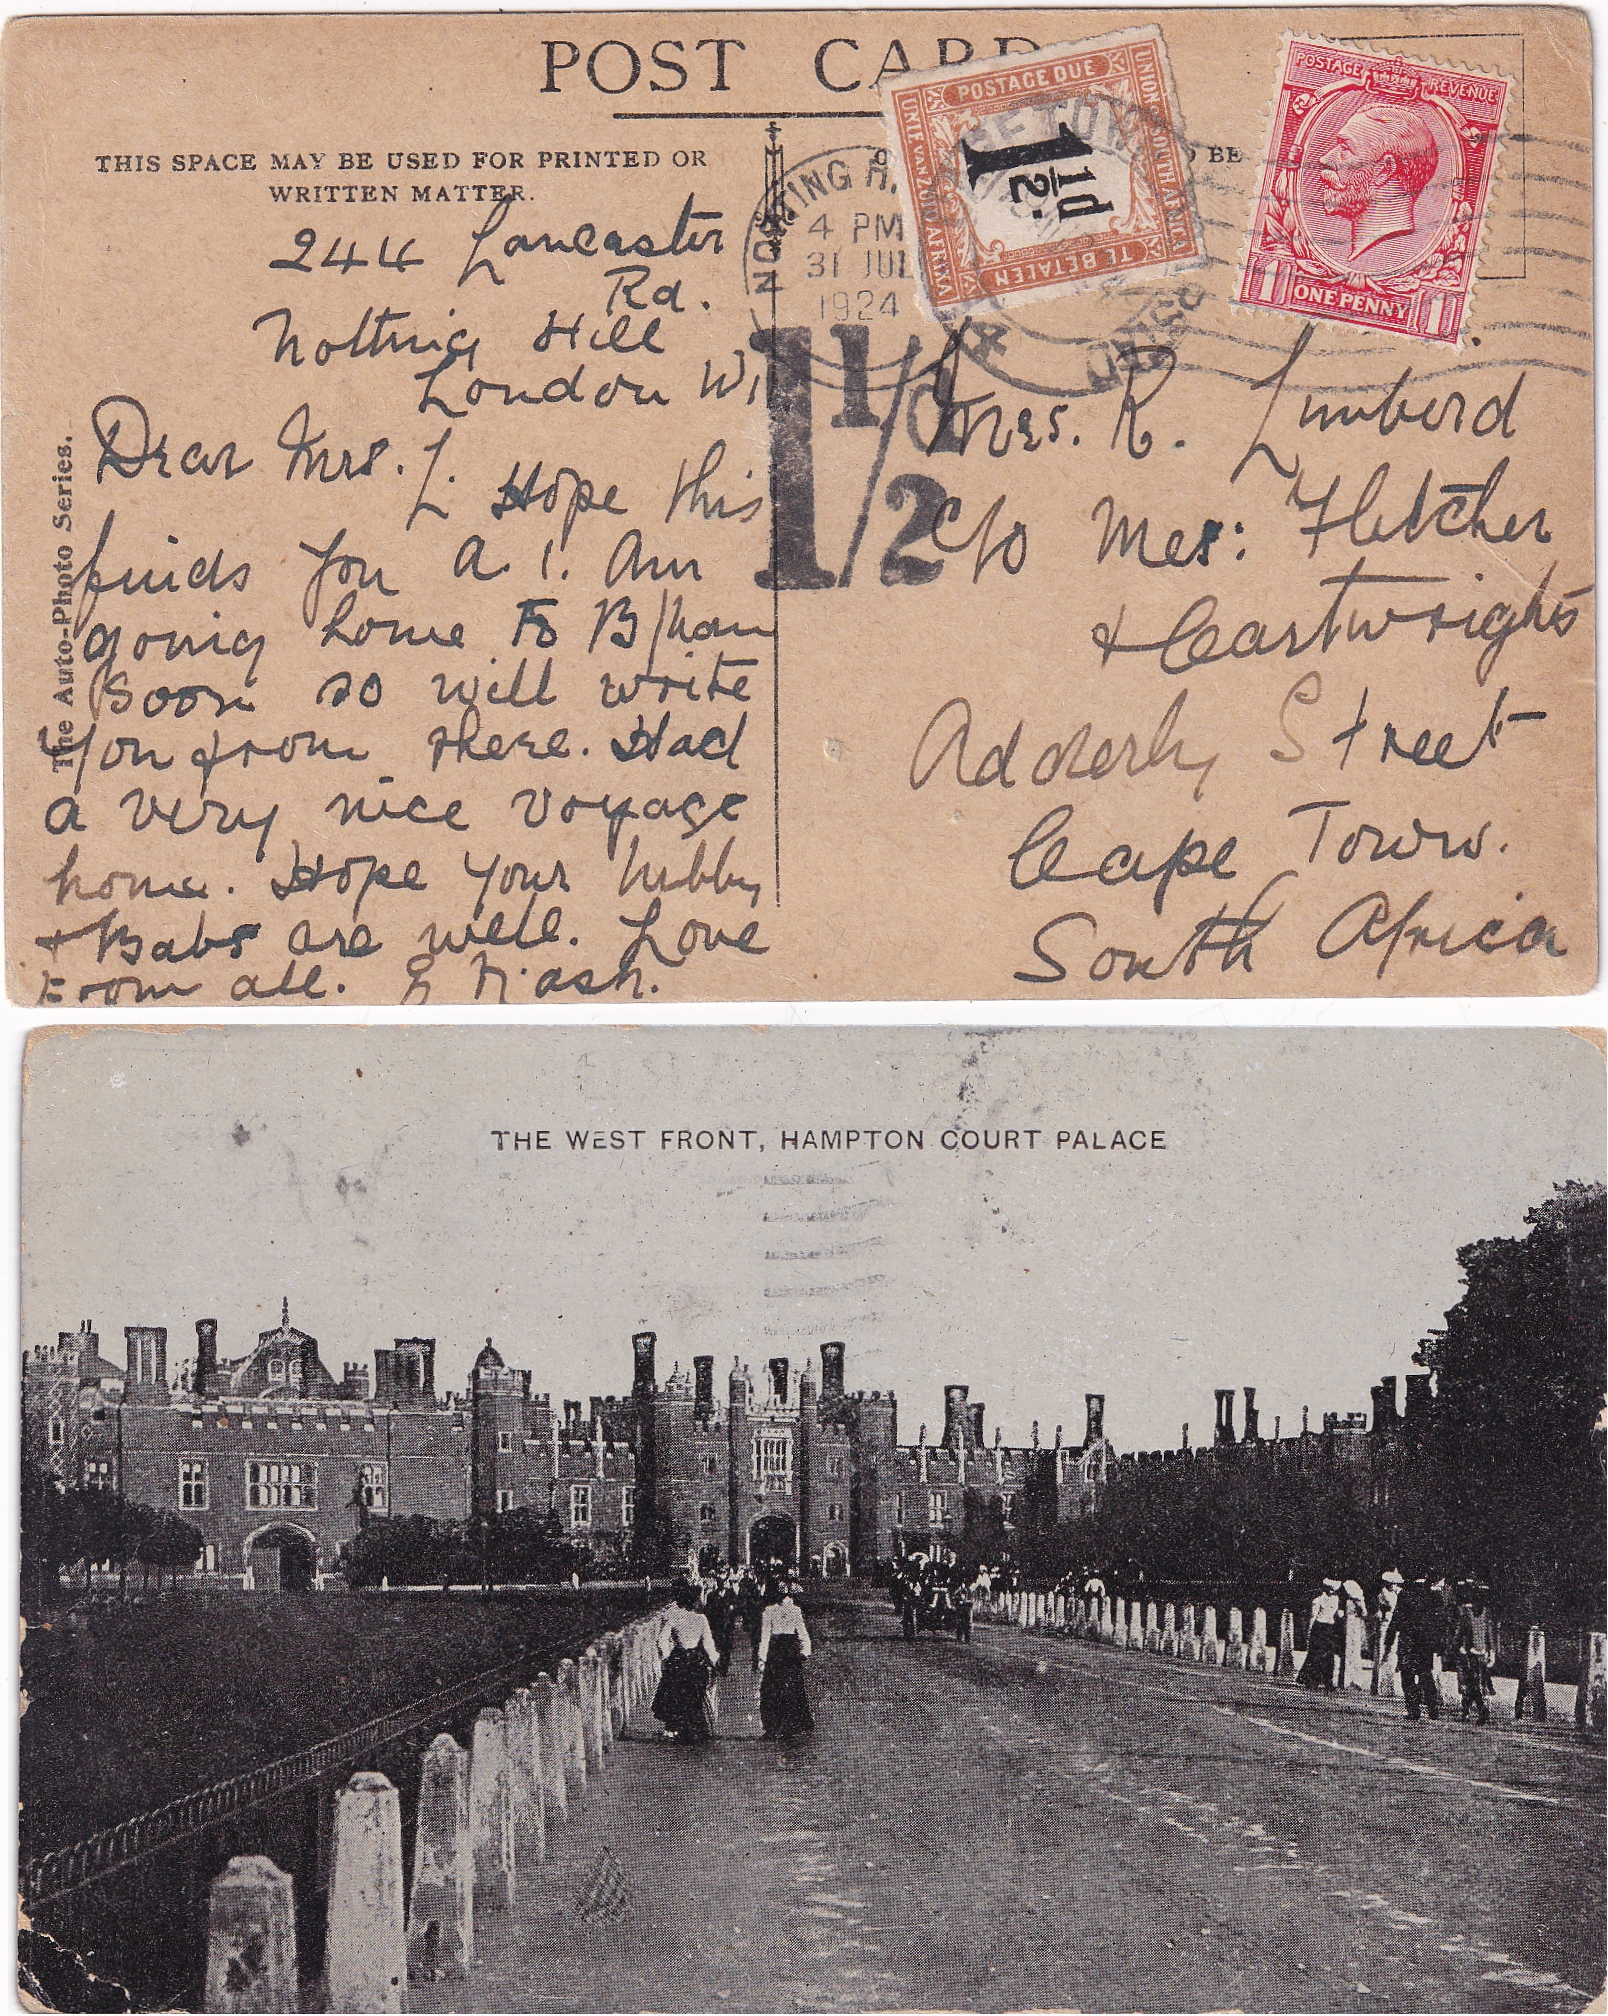 POST CARD
THIS SPACE MAY BE USED FOR PRINTED OR
WRITTEN MATTER.
244 Lancaster
Rd.
Notting Hill
London W11
Dear Mrs. L. Hope this
finds you A.1. Am
going home to B/ham
soon so will write
you from there. Had
a very nice voyage
home. Hope your hubby
+ Babs are well. Love
From all. E Nash.
The Auto-Photo Series.
NOTTING H.
4 PM
31 JUL
1924
1 1/2 d
POSTAGE DUE
UNION OF SOUTH AFRICA
UNIE VAN ZUID AFRIKA
TE BETALEN
1½d
BE
POSTAGE REVENUE
1 ONE PENNY 1
Mrs. R. Limberd
c/o Mes: Fletcher
+ Cartwrights
Adderly Street
Cape Town.
South Africa
THE WEST FRONT, HAMPTON COURT PALACE